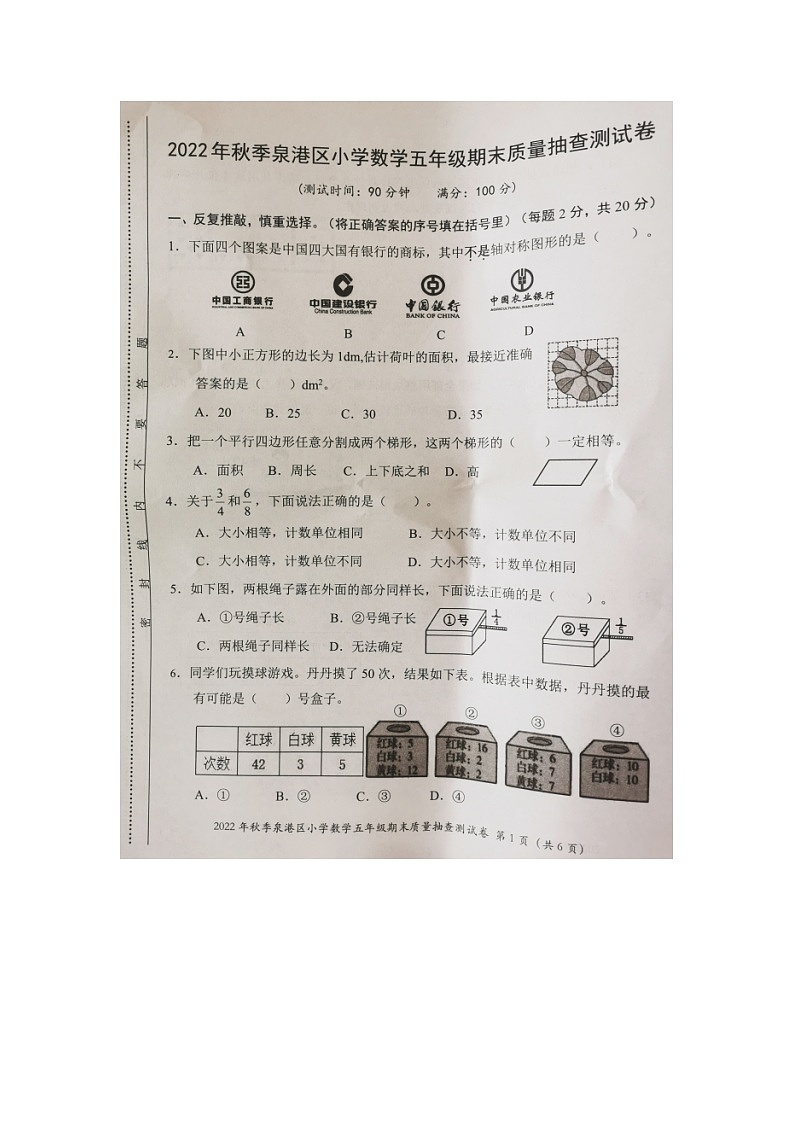 2022年秋季泉港区小学数学五年级期末质量抽查测试卷
(测试时间:90分钟 满分:100分)
一、反复推敲,慎重选择。(将正确答案的序号填在括号里)(每题2分,共20分)
1. 下面四个图案是中国四大国有银行的商标,其中不是轴对称图形的是( )。
中国工商银行 中国建设银行 中国银行 中国农业银行
China Construction Bank BANK OF CHINA AGRICULTURAL BANK OF CHINA
A B C D
2. 下图中小正方形的边长为1dm,估计荷叶的面积,最接近准确
答案的是( )dm²。
A. 20 B. 25 C. 30 D. 35
3. 把一个平行四边形任意分割成两个梯形,这两个梯形的( )一定相等。
A. 面积 B. 周长 C. 上下底之和 D. 高
4. 关于3/4和6/8,下面说法正确的是( )。
A. 大小相等,计数单位相同 B. 大小不等,计数单位不同
C. 大小相等,计数单位不同 D. 大小不等,计数单位相同
5. 如下图,两根绳子露在外面的部分同样长,下面说法正确的是( )。
A. ①号绳子长 B. ②号绳子长
①号 1/4 ②号 1/5
C. 两根绳子同样长 D. 无法确定
6. 同学们玩摸球游戏。丹丹摸了50次,结果如下表。根据表中数据,丹丹摸的最
有可能是( )号盒子。
① ② ③ ④
红球 白球 黄球
次数 42 3 5
红球:5 白球:3 黄球:12
红球:16 白球:2 黄球:2
红球:6 白球:7 黄球:7
红球:10 白球:10
A. ① B. ② C. ③ D. ④
2022年秋季泉港区小学数学五年级期末质量抽查测试卷 第1页(共6页)
密 封 线 内 不 要 答 题